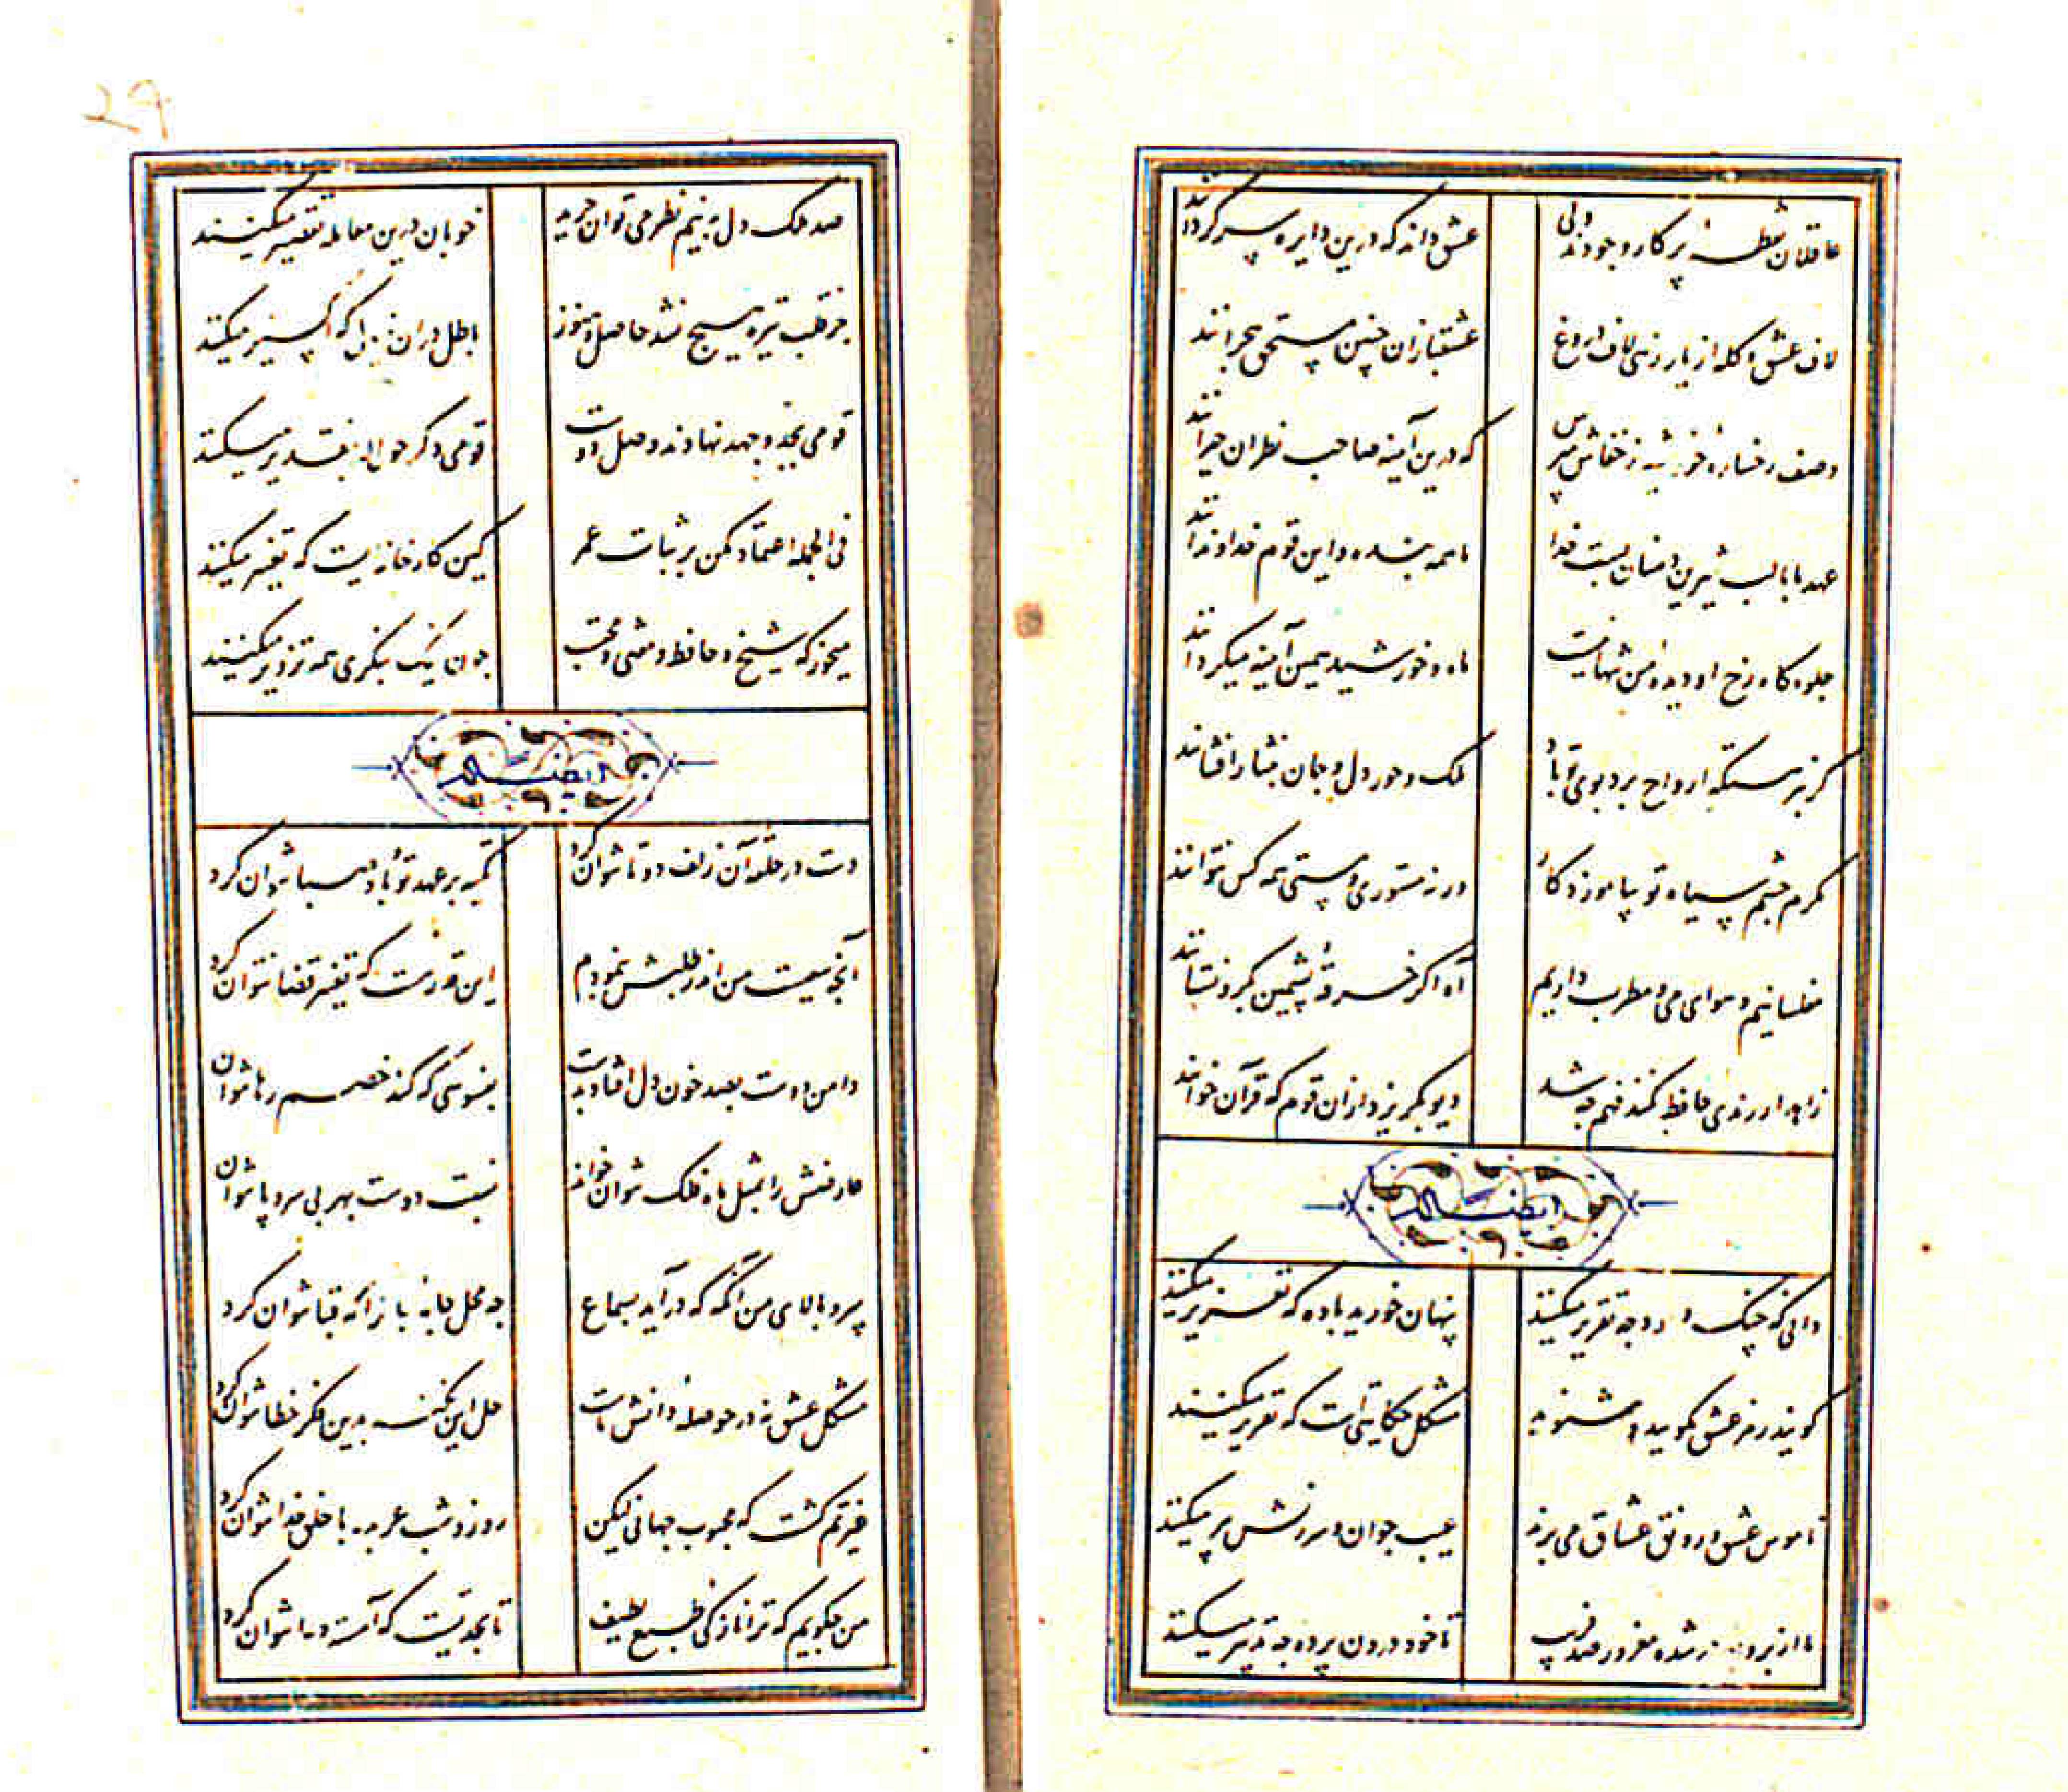 عاقلان نقطه پرکار وجودند ولی عشق داند که درین دایره سرکردانند
لاف عشق و کله از یار زهی لاف دروغ عشقبازان چنین مستحق هجرانند
وصف رخساره خورشید ز خفاش مپرس که درین آینه صاحب نظران حیرانند
عهد ما با لب شیرین دهنان بست خدا ما همه بنده و این قوم خداوندانند
جلوه کاه رخ او دیده من تنها نیست ماه و خورشید همین آینه میکردانند
کر بنزهتکه ارواح برد بوی تو باد ملک و حور دل و جان بنثار افشانند
مکرم چشم سیاه تو بیاموزد کار ورنه مستوری و مستی همه کس نتوانند
مفلسانیم و هوای می و مطرب داریم آه اکر خرقه پشمین بکرو نستانند
زاهد ار رندی حافظ نکند فهم چه شد دیو بکریزد ازان قوم که قرآن خوانند
ایضاً له
دانی که چنک و عود چه تقریر میکنند پنهان خورید باده که تعزیر میکنند
کویند رمز عشق مکویید و مشنوید مشکل حکایتی است که تقریر میکنند
ناموس عشق و رونق عشاق می برند عیب جوان و سرزنش پیر میکنند
ما از برون در شده مغرور صد فریب تا خود درون پرده چه تدبیر میکنند
29
صد ملک دل به نیم نظر می توان خرید خوبان درین معامله تقصیر میکنند
جز قلب تیره هیچ نشد حاصل و هنوز باطل دران خیال که اکسیر میکنند
قومی بجد و جهد نهادند وصل دوست قومی دکر حواله بتقدیر میکنند
فی الجمله اعتماد مکن بر ثبات عمر کین کارخانه ایست که تغییر میکنند
می خور که شیخ و حافظ و مفتی و محتسب چون نیک بنکری همه تزویر میکنند
ایضاً له
دست در حلقه آن زلف دوتا نتوان کرد تکیه بر عهد تو و باد صبا نتوان کرد
آنچه سعیست من اندر طلبش بنمودم این قدر هست که تغییر قضا نتوان کرد
دامن دوست بصد خون دل افتاد بدست بفسوسی که کند خصم رها نتوان
عارضش را بمثل ماه فلک نتوان خواند نسبت دوست بهر بی سر و پا نتوان
سرو بالای من آنکه که درآید بسماع چه محل جامه جانرا که قبا نتوان کرد
مشکل عشق نه در حوصله دانش ماست حل این نکته بدین فکر خطا نتوان کرد
غیرتم کشت که محبوب جهانی لیکن روز و شب عربده با خلق خدا نتوان کرد
من چکویم که ترا نازکی طبع لطیف تا بحدیست که آهسته دعا نتوان کرد